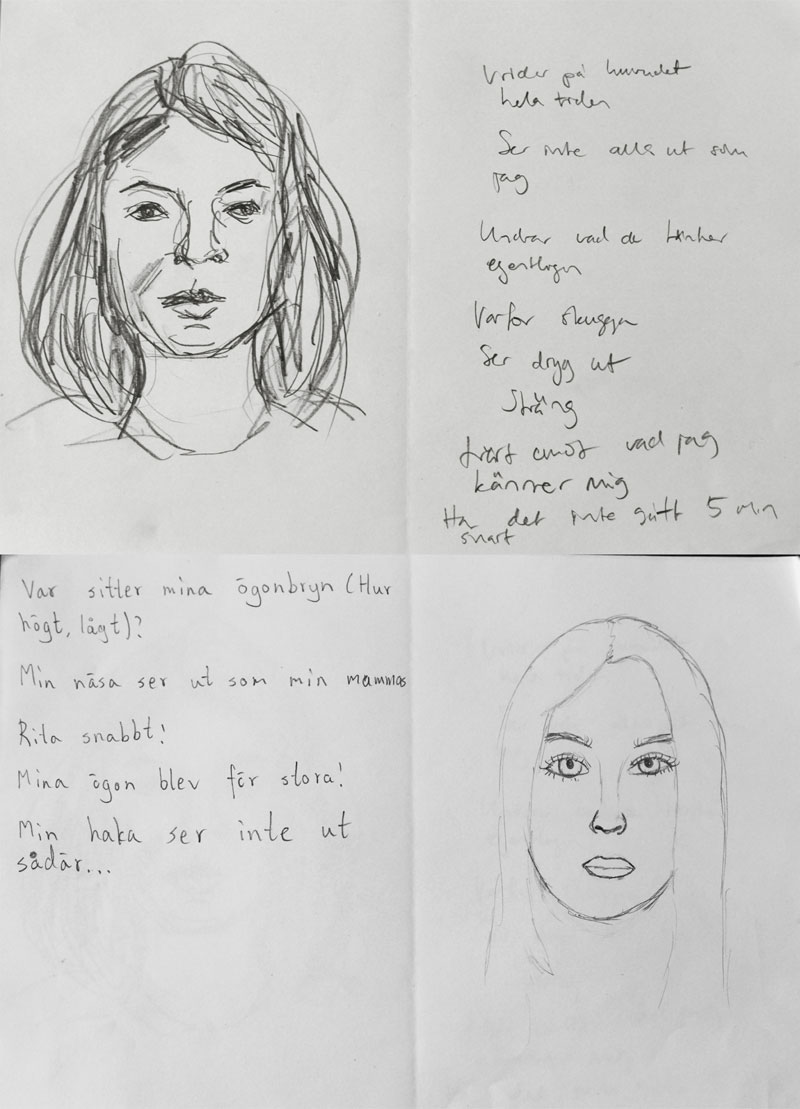 Vrider på huvudet
hela tiden
Ser inte alla ut som
jag
Undrar vad de tänker
egentligen
Varför skugga
Ser dryg ut
Sträng
tvärt emot vad jag
känner mig
Ha det inte gått 5 min
snart
Var sitter mina ögonbryn (Hur
högt, lågt)?
Min näsa ser ut som min mammas
Rita snabbt!
Mina ögon blev för stora!
Min haka ser inte ut
sådär...